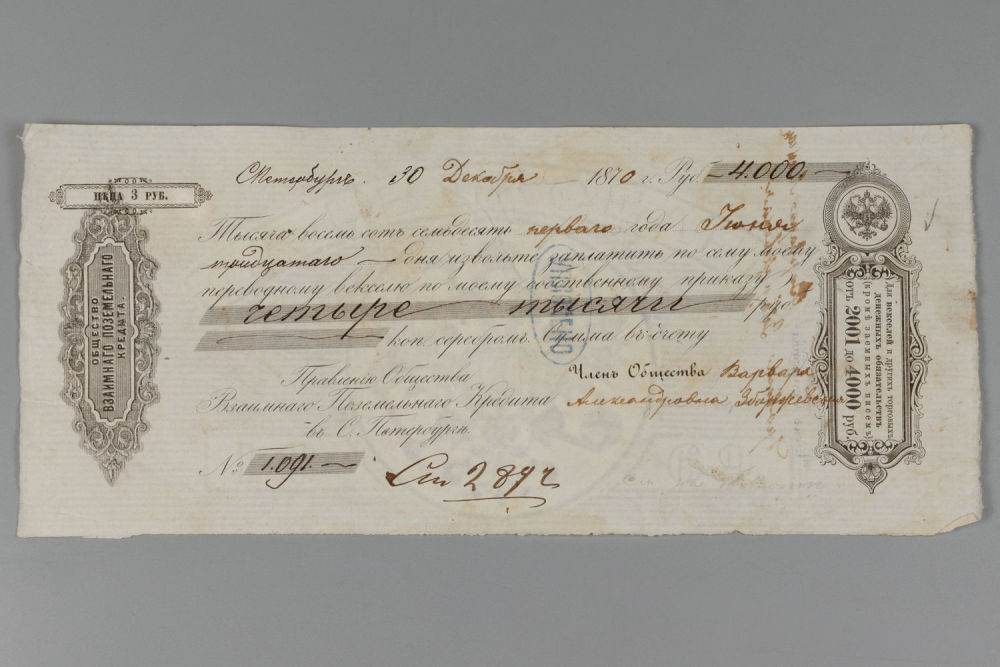 СПетербургъ. 30 Декабря 1870 г. Руб. 4.000.
ЦѢНА 3 РУБ.
ОБЩЕСТВО
ВЗАИМНАГО ПОЗЕМЕЛЬНАГО
КРЕДИТА.
Тысяча восемь сотъ семьдесятъ перваго года Іюня
тридцатаго дня извольте заплатить по сему моему
переводному векселю по моему собственному приказу
четыре тысячи руб.
коп. серебромъ. Сумма въ счету
Правленію Общества
Взаимнаго Поземельнаго Кредита
въ С. Петербургѣ.
Членъ Общества Варвара
Александровна
№ 1.091.
2892
Для векселей и другихъ торговыхъ
денежныхъ обязательствъ
(кромѣ заемныхъ писемъ)
отъ 2001 до 4000 руб.